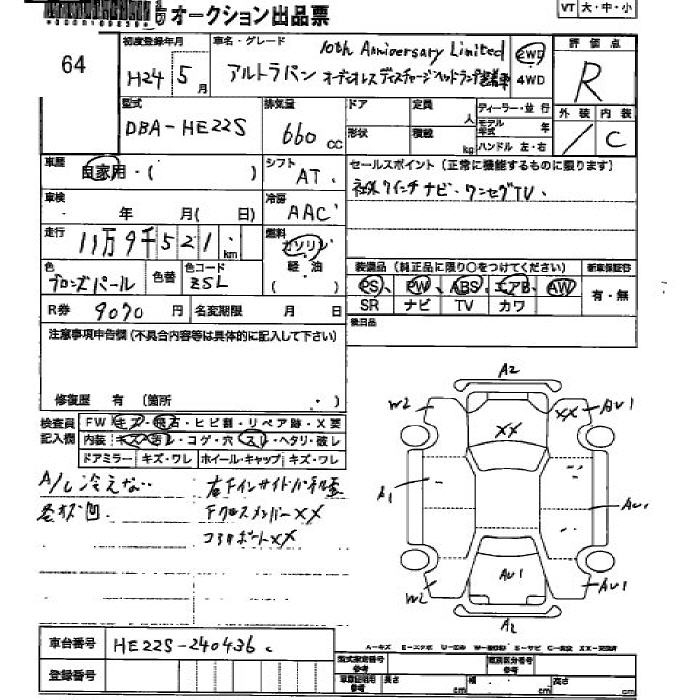 オークション出品票
VT 大・中・小
64
初度登録年月
H24 5月
車名・グレード
10th Anniversary Limited
アルトラパン オーディオレス ディスチャージヘッドランプ装着車
2WD
4WD
評価点
R
外装 内装
/ C
型式
DBA-HE22S
排気量
660 cc
ドア
定員 人
形状
積載 kg
ディーラー・並行
モデル年式 年
ハンドル 左・右
車歴
自家用・( )
シフト
AT
セールスポイント(正常に機能するものに限ります)
社外7インチナビ・ワンセグTV、
車検
年 月( 日)
冷房
AAC
走行
11万9千521 km
燃料
ガソリン
軽・油
( )
色
ブロンズパール
色替
色コード
ZSL
装備品(純正品に限り○をつけてください)
PS、PW、ABS、エアB、AW
SR ナビ TV カワ
新車保証書
有・無
R券 9070 円
名変期限 月 日
後日品
注意事項申告欄(不具合内容等は具体的に記入して下さい)
修復歴 有 (箇所 )
検査員記入欄
FW キズ・飛石・ヒビ割・リペア跡・X要
内装 キズ・汚レ・コゲ・穴・スレ・ヘタリ・破レ
ドアミラー キズ・ワレ ホイール・キャップ キズ・ワレ
A/C冷えない
各キズ凹
右FインサイドパネルXX
FクロスメンバーXX
コアサポートXX
A2
W2
XX
AU1
XX
A1
AU1
AU1
W2
AU1
A2
車台番号 HE22S-240436
登録番号
A-キズ E-エクボ U-凹ミ W-波ウチ S-サビ C-腐食 XX-交換済
型式指定番号
参考
類別区分番号
参考
車庫証明用
参考
長さ cm 幅 cm 高さ cm